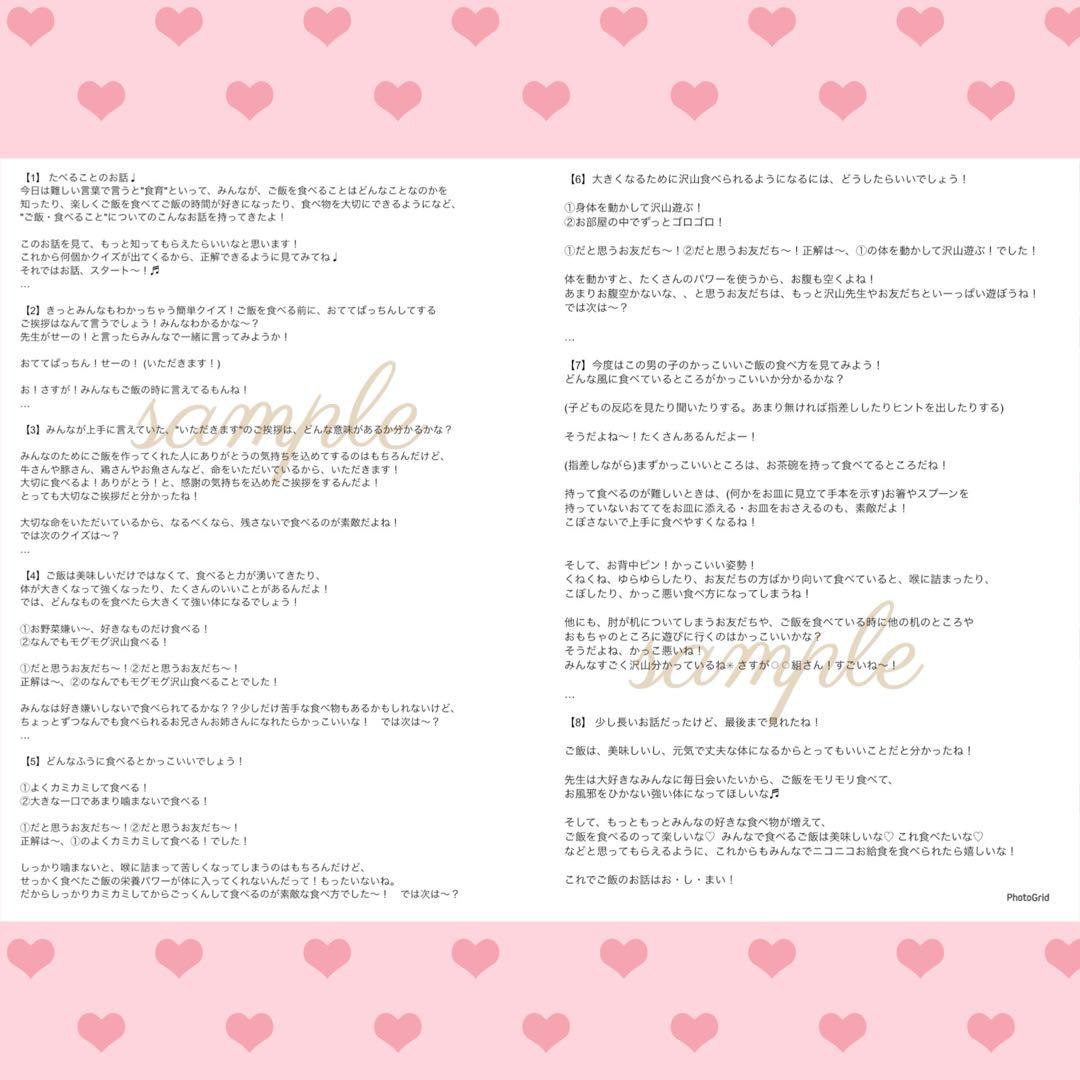 【1】 たべることのお話♩
今日は難しい言葉で言うと"食育"といって、みんなが、ご飯を食べることはどんなことなのかを
知ったり、楽しくご飯を食べてご飯の時間が好きになったり、食べ物を大切にできるようになど、
"ご飯・食べること"についてのこんなお話を持ってきたよ！
このお話を見て、もっと知ってもらえたらいいなと思います！
これから何個かクイズが出てくるから、正解できるように見てみてね♩
それではお話、スタート〜！♬
…
【2】きっとみんなもわかっちゃう簡単クイズ！ご飯を食べる前に、おててぱっちんしてする
ご挨拶はなんて言うでしょう！みんなわかるかな〜？
先生がせーの！と言ったらみんなで一緒に言ってみようか！
おててぱっちん！せーの！ (いただきます！)
お！さすが！みんなもご飯の時に言えてるもんね！
…
sample
【3】みんなが上手に言えていた、"いただきます"のご挨拶は、どんな意味があるか分かるかな？
みんなのためにご飯を作ってくれた人にありがとうの気持ちを込めてするのはもちろんだけど、
牛さんや豚さん、鶏さんやお魚さんなど、命をいただいているから、いただきます！
大切に食べるよ！ありがとう！と、感謝の気持ちを込めたご挨拶をするんだよ！
とっても大切なご挨拶だと分かったね！
大切な命をいただいているから、なるべくなら、残さないで食べるのが素敵だよね！
では次のクイズは〜？
…
【4】ご飯は美味しいだけではなくて、食べると力が湧いてきたり、
体が大きくなって強くなったり、たくさんのいいことがあるんだよ！
では、どんなものを食べたら大きくて強い体になるでしょう！
①お野菜嫌い〜、好きなものだけ食べる！
②なんでもモグモグ沢山食べる！
①だと思うお友だち〜！②だと思うお友だち〜！
正解は〜、②のなんでもモグモグ沢山食べることでした！
みんなは好き嫌いしないで食べられてるかな？？少しだけ苦手な食べ物もあるかもしれないけど、
ちょっとずつなんでも食べられるお兄さんお姉さんになれたらかっこいいな！　では次は〜？
…
【5】どんなふうに食べるとかっこいいでしょう！
①よくカミカミして食べる！
②大きな一口であまり噛まないで食べる！
①だと思うお友だち〜！②だと思うお友だち〜！
正解は〜、①のよくカミカミして食べる！でした！
しっかり噛まないと、喉に詰まって苦しくなってしまうのはもちろんだけど、
せっかく食べたご飯の栄養パワーが体に入ってくれないんだって！もったいないね。
だからしっかりカミカミしてからごっくんして食べるのが素敵な食べ方でした〜！　では次は〜？
【6】大きくなるために沢山食べられるようになるには、どうしたらいいでしょう！
①身体を動かして沢山遊ぶ！
②お部屋の中でずっとゴロゴロ！
①だと思うお友だち〜！②だと思うお友だち〜！正解は〜、①の体を動かして沢山遊ぶ！でした！
体を動かすと、たくさんのパワーを使うから、お腹も空くよね！
あまりお腹空かないな、、と思うお友だちは、もっと沢山先生やお友だちといーっぱい遊ぼうね！
では次は〜？
…
【7】今度はこの男の子のかっこいいご飯の食べ方を見てみよう！
どんな風に食べているところがかっこいいか分かるかな？
(子どもの反応を見たり聞いたりする。あまり無ければ指差ししたりヒントを出したりする)
そうだよね〜！たくさんあるんだよー！
(指差しながら)まずかっこいいところは、お茶碗を持って食べてるところだね！
持って食べるのが難しいときは、(何かをお皿に見立て手本を示す)お箸やスプーンを
持っていないおててをお皿に添える・お皿をおさえるのも、素敵だよ！
こぼさないで上手に食べやすくなるね！
そして、お背中ピン！かっこいい姿勢！
くねくね、ゆらゆらしたり、お友だちの方ばかり向いて食べていると、喉に詰まったり、
こぼしたり、かっこ悪い食べ方になってしまうね！
他にも、肘が机についてしまうお友だちや、ご飯を食べている時に他の机のところや
おもちゃのところに遊びに行くのはかっこいいかな？
そうだよね、かっこ悪いね！
みんなすごく沢山分かっているね✳︎ さすが○○組さん！すごいね〜！
sample
…
【8】 少し長いお話だったけど、最後まで見れたね！
ご飯は、美味しいし、元気で丈夫な体になるからとってもいいことだと分かったね！
先生は大好きなみんなに毎日会いたいから、ご飯をモリモリ食べて、
お風邪をひかない強い体になってほしいな♬
そして、もっともっとみんなの好きな食べ物が増えて、
ご飯を食べるのって楽しいな♡ みんなで食べるご飯は美味しいな♡ これ食べたいな♡
などと思ってもらえるように、これからもみんなでニコニコお給食を食べられたら嬉しいな！
これでご飯のお話はお・し・まい！
PhotoGrid